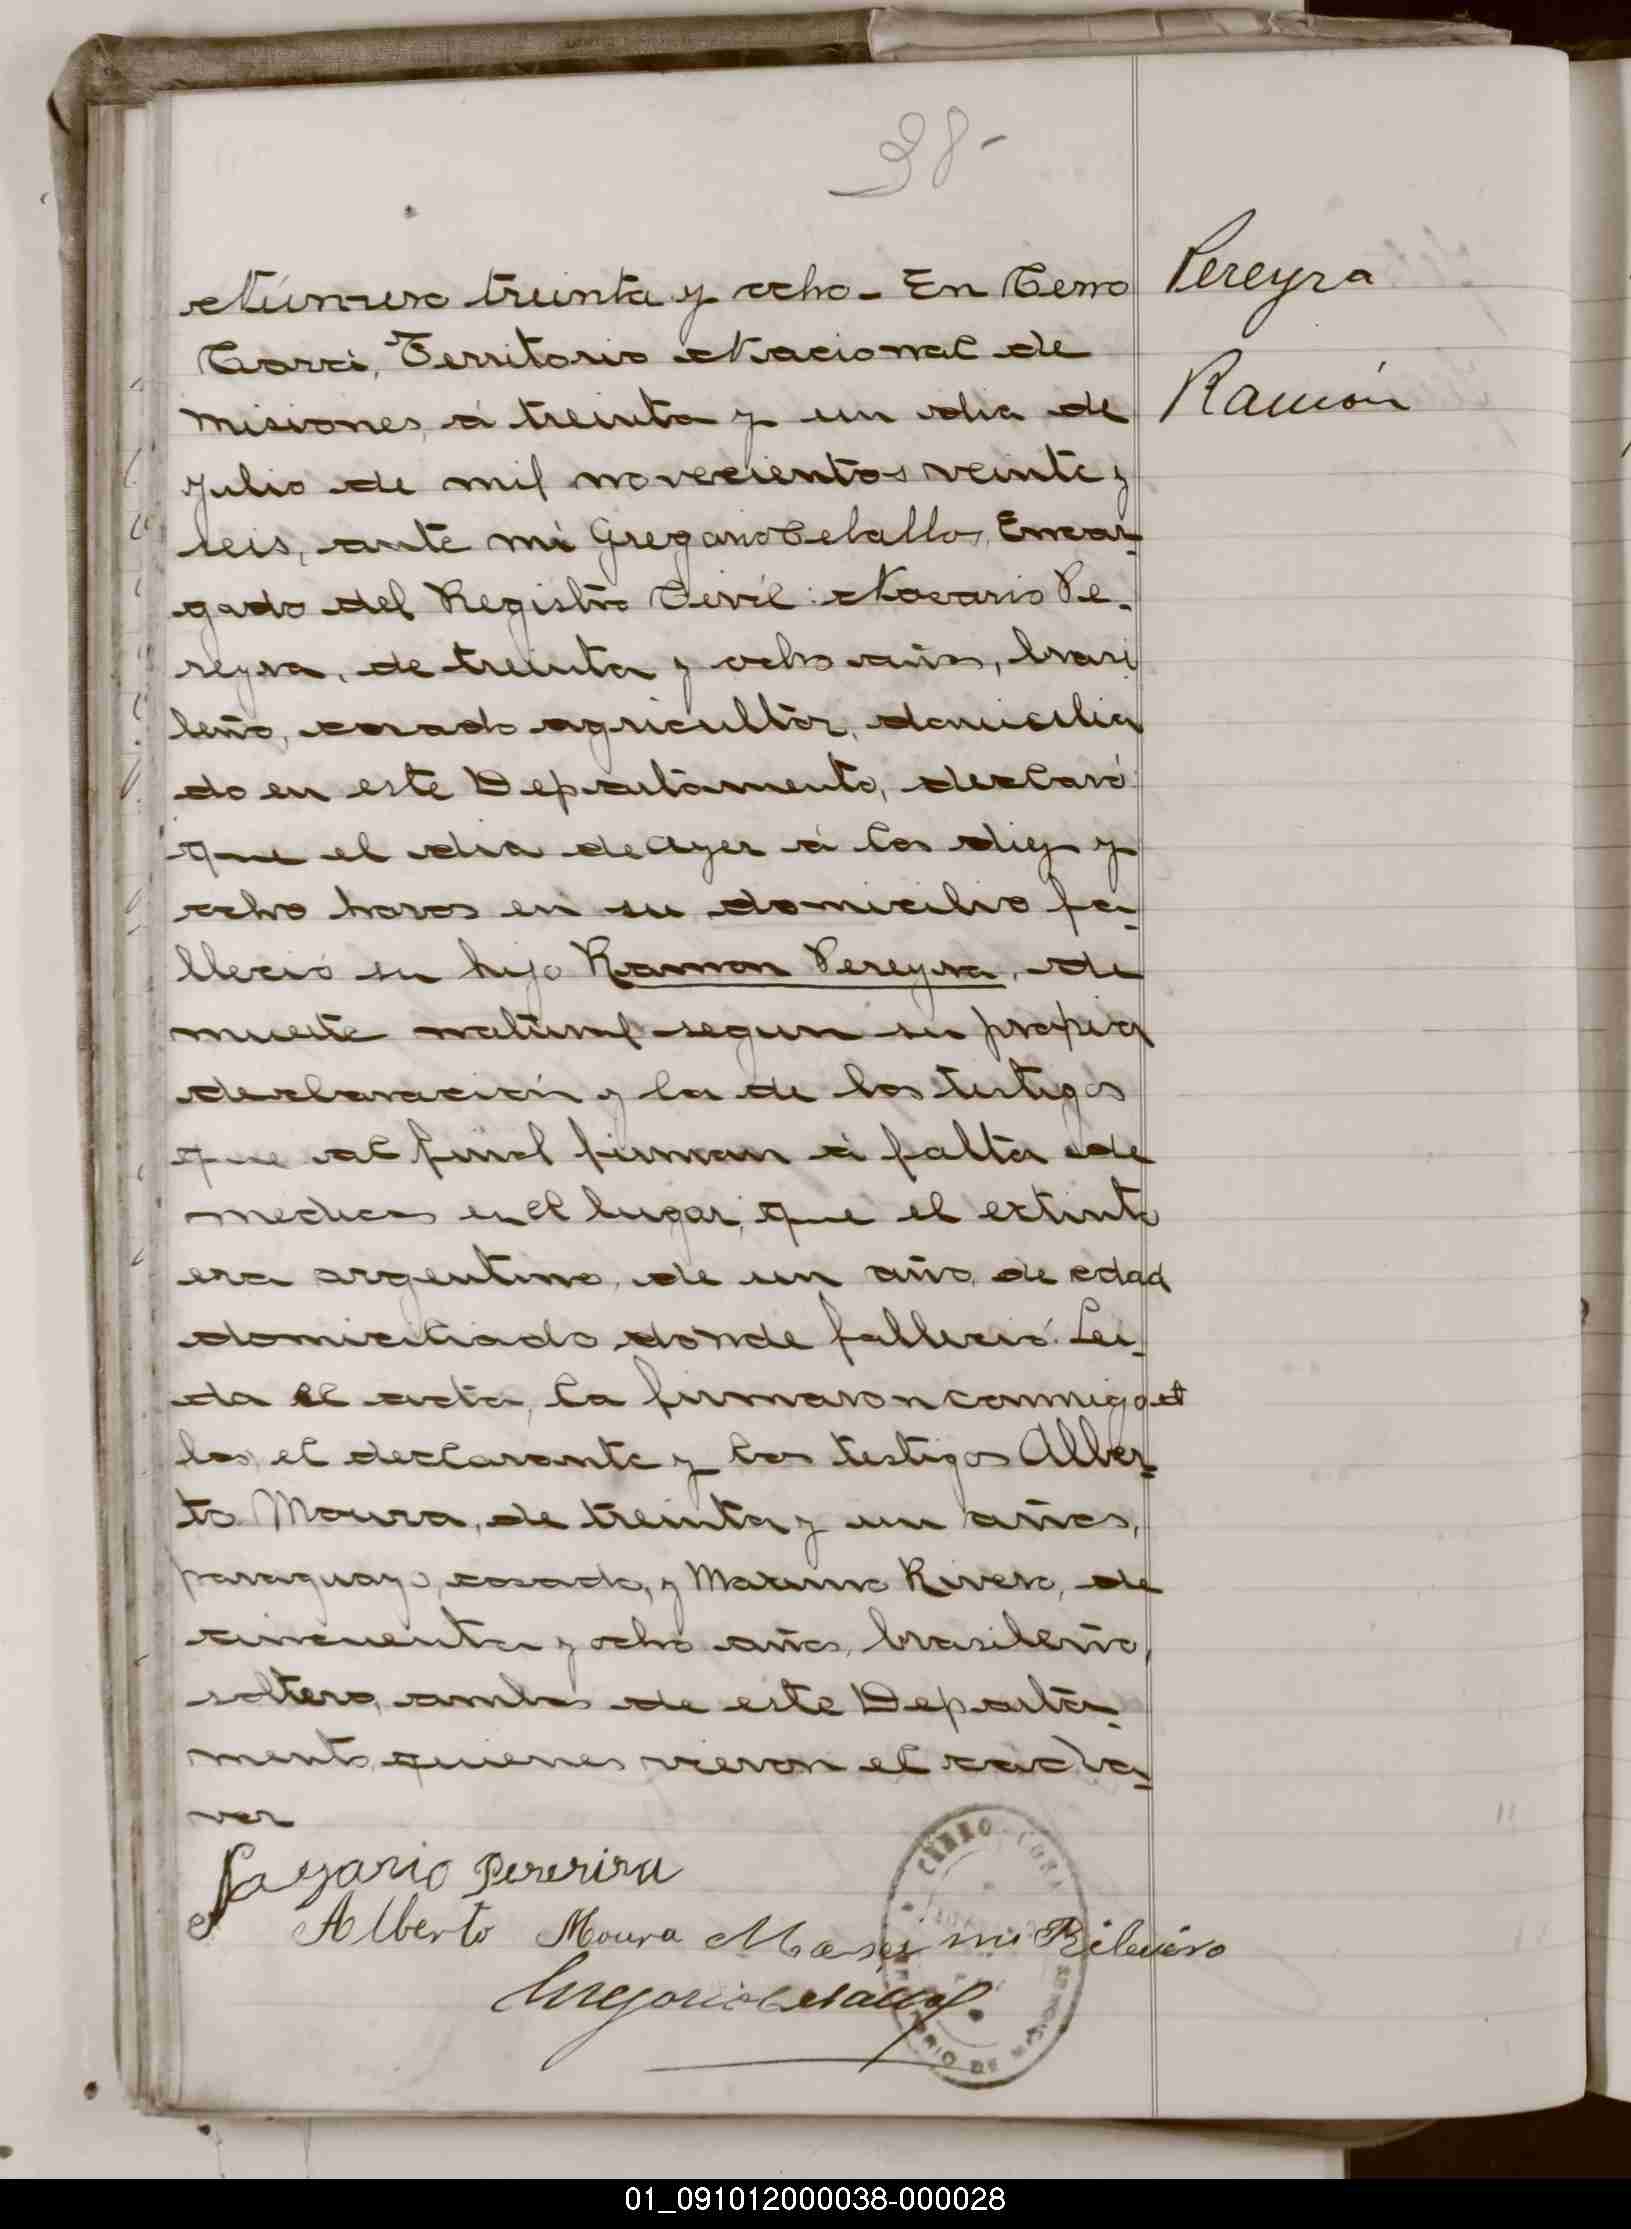 38-
Pereyra
Ramón
Número treinta y ocho - En Cerro
Corá, Territorio Nacional de
Misiones, á treinta y un dia de
Julio de mil novecientos veinte y
seis, ante mi Gregorio Ceballos, Encar-
gado del Registro Civil: Nasario Pe-
reyra, de treinta y ocho años, brasi
leño, casado agricultor, domicilia
do en este Departamento, declaró:
que el dia de ayer á las diez y
ocho horas en su domicilio fa-
lleció su hijo Ramon Pereyra, de
muerte natural segun su propia
declaración y la de los testigos
que al final firman á falta de
medicos en el lugar, que el extinto
era argentino, de un año de edad
domiciliado donde falleció. Lei-
da el acta, la firmaron conmigo
los, el declarante y los testigos Alber-
to Moura, de treinta y un años,
paraguayo, casado, y Maximo Rivero, de
cincuenta y ocho años, brasileño,
soltero, ambos de este Departa-
mento quienes vieron el cadá-
ver
Nazario Pererira
Alberto Moura Ribeiro
Gregorio Ceballos
CERRO-CORÁ
DE
01_091012000038-000028